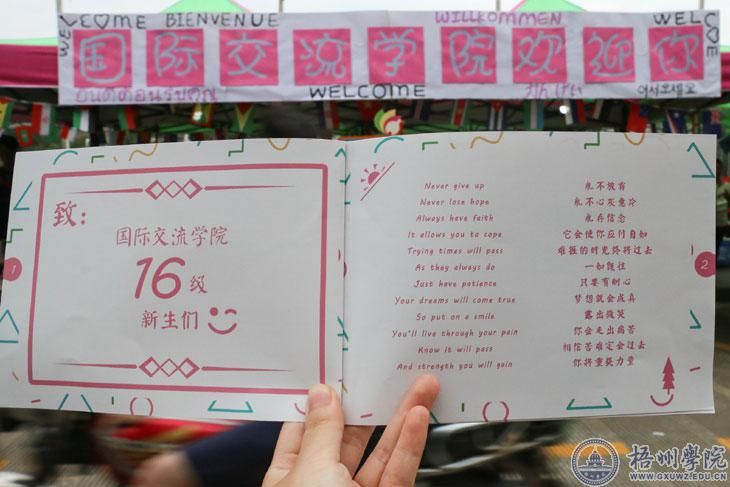 WELCOME BIENVENUE WELCOME WILLKOMMEN WELCOME
国际交流学院欢迎你
WELCOME 어서오세요
致：
国际交流学院
16级
新生们
1
Never give up 永不放弃
Never lose hope 永不心灰意冷
Always have faith 永存信念
It allows you to cope 它会使你应付自如
Trying times will pass 难捱的时光终将过去
As they always do 一如既往
Just have patience 只要有耐心
Your dreams will come true 梦想就会成真
So put on a smile 露出微笑
You'll live through your pain 你会走出痛苦
Know it will pass 相信苦难定会过去
And strength you will gain 你将重获力量
2
梧州學院
WWW.GXUWZ.EDU.CN